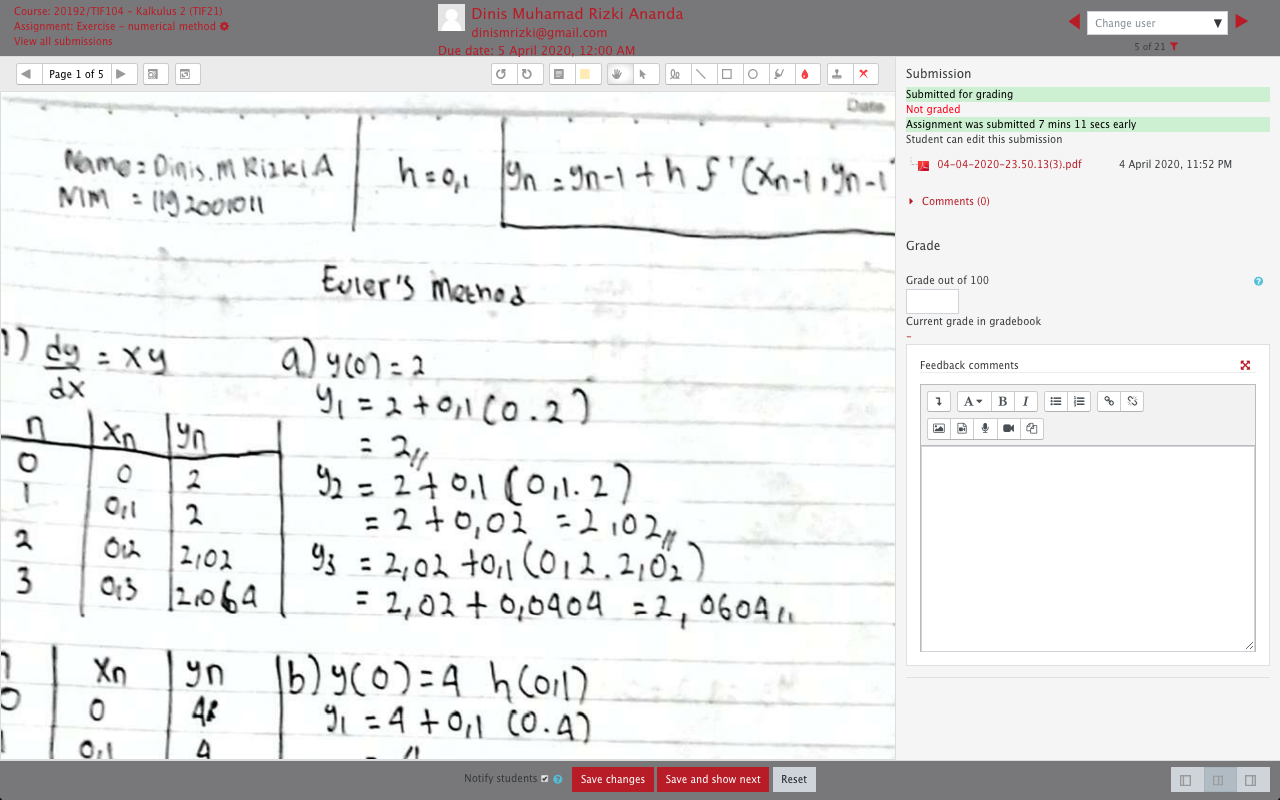 Course: 20192/TIF104 - Kalkulus 2 (TIF21)
Assignment: Exercise - numerical method
View all submissions
Dinis Muhamad Rizki Ananda
dinismrizki@gmail.com
Due date: 5 April 2020, 12:00 AM
Change user
5 of 21
Page 1 of 5
Date
Name = Dinis.M Rizki A
NIM = 1192001011
h = 0,1
yn = yn-1 + h f'(xn-1, yn-1
Euler's Method
1) dy/dx = xy
a) y(0) = 2
y1 = 2 + 0,1 (0.2)
= 2//
y2 = 2 + 0,1 (0,1.2)
= 2 + 0,02 = 2,02//
y3 = 2,02 + 0,1 (0,2.2,02)
= 2,02 + 0,0404 = 2,0604//
n xn yn
0 0 2
1 0,1 2
2 0,2 2,02
3 0,3 2,064
n xn yn
0 0 4
1 0,1 4
b) y(0) = 4 h(0,1)
y1 = 4 + 0,1 (0.4)
Submission
Submitted for grading
Not graded
Assignment was submitted 7 mins 11 secs early
Student can edit this submission
04-04-2020-23.50.13(3).pdf 4 April 2020, 11:52 PM
Comments (0)
Grade
Grade out of 100
Current grade in gradebook
-
Feedback comments
Notify students
Save changes
Save and show next
Reset